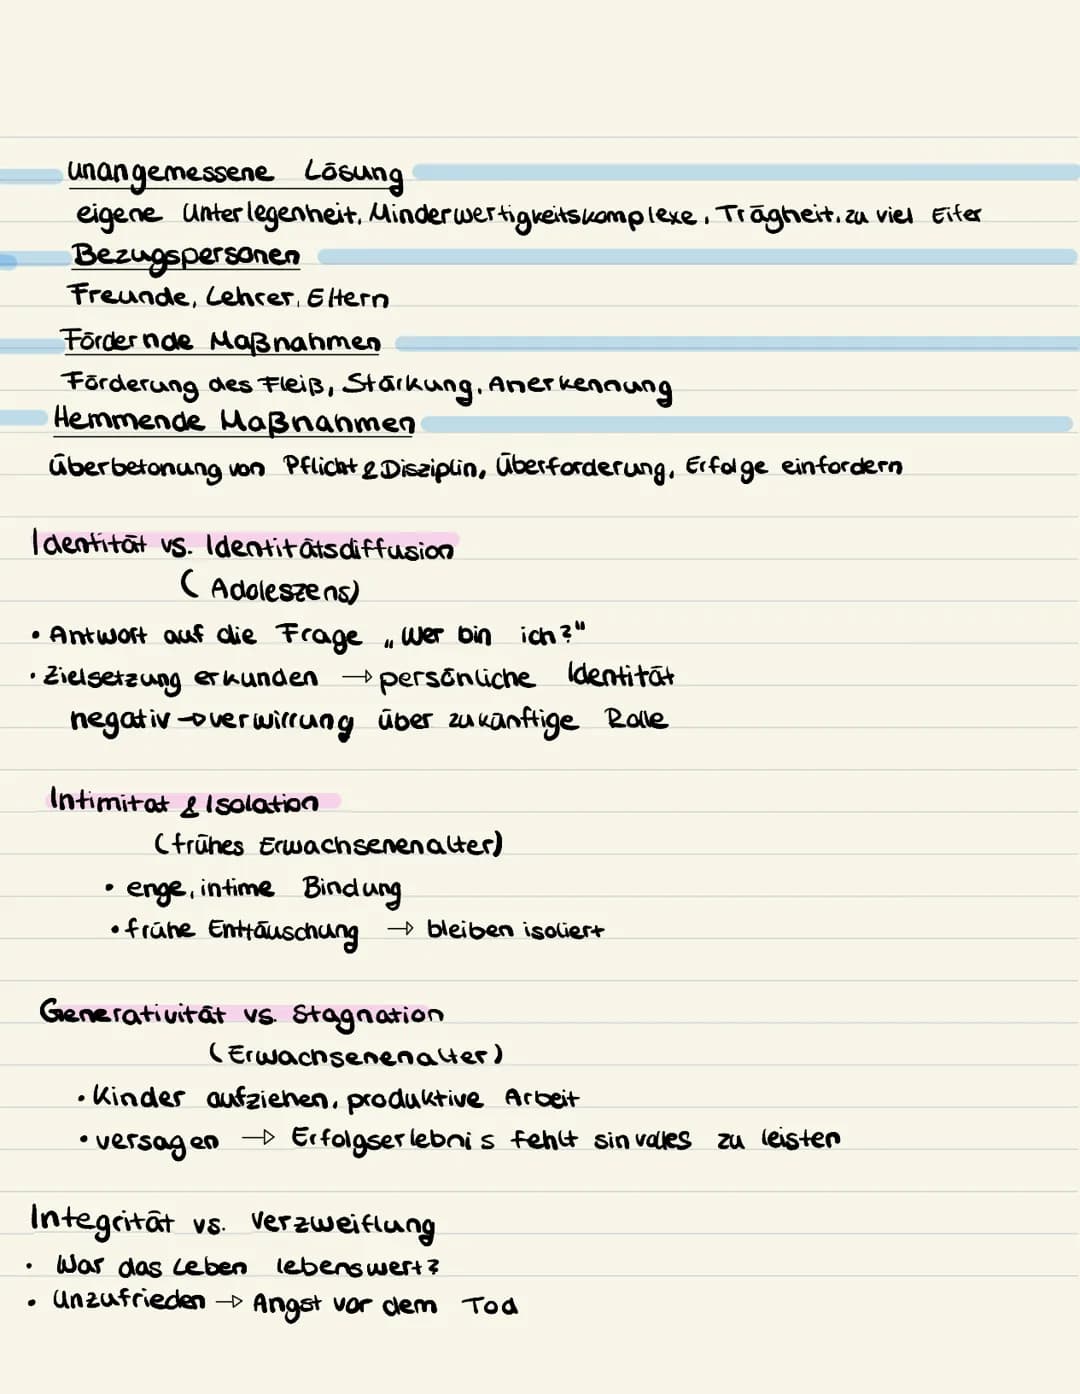 unangemessene Lösung
eigene Unterlegenheit, Minderwertigkeitskomplexe, Trägheit, zu viel Eifer
Bezugspersonen
Freunde, Lehrer, Eltern
Fördernde Maßnahmen
Förderung des Fleiß, Stärkung, Anerkennung
Hemmende Maßnahmen
Überbetonung von Pflicht & Disziplin, Überforderung, Erfolge einfordern
Identität vs. Identitätsdiffusion
(Adoleszens)
• Antwort auf die Frage „Wer bin ich?"
• Zielsetzung erkunden → persönliche Identität
negativ → verwirrung über zukünftige Rolle
Intimitat & Isolation
(frühes Erwachsenenalter)
• enge, intime Bindung
• frühe Enttäuschung → bleiben isoliert
Generativität vs. Stagnation
(Erwachsenenalter)
• Kinder aufziehen, produktive Arbeit
• versagen → Erfolgserlebnis fehlt sinvolles zu leisten
Integrität vs. Verzweiflung
• War das Leben lebenswert?
• Unzufrieden → Angst vor dem Tod